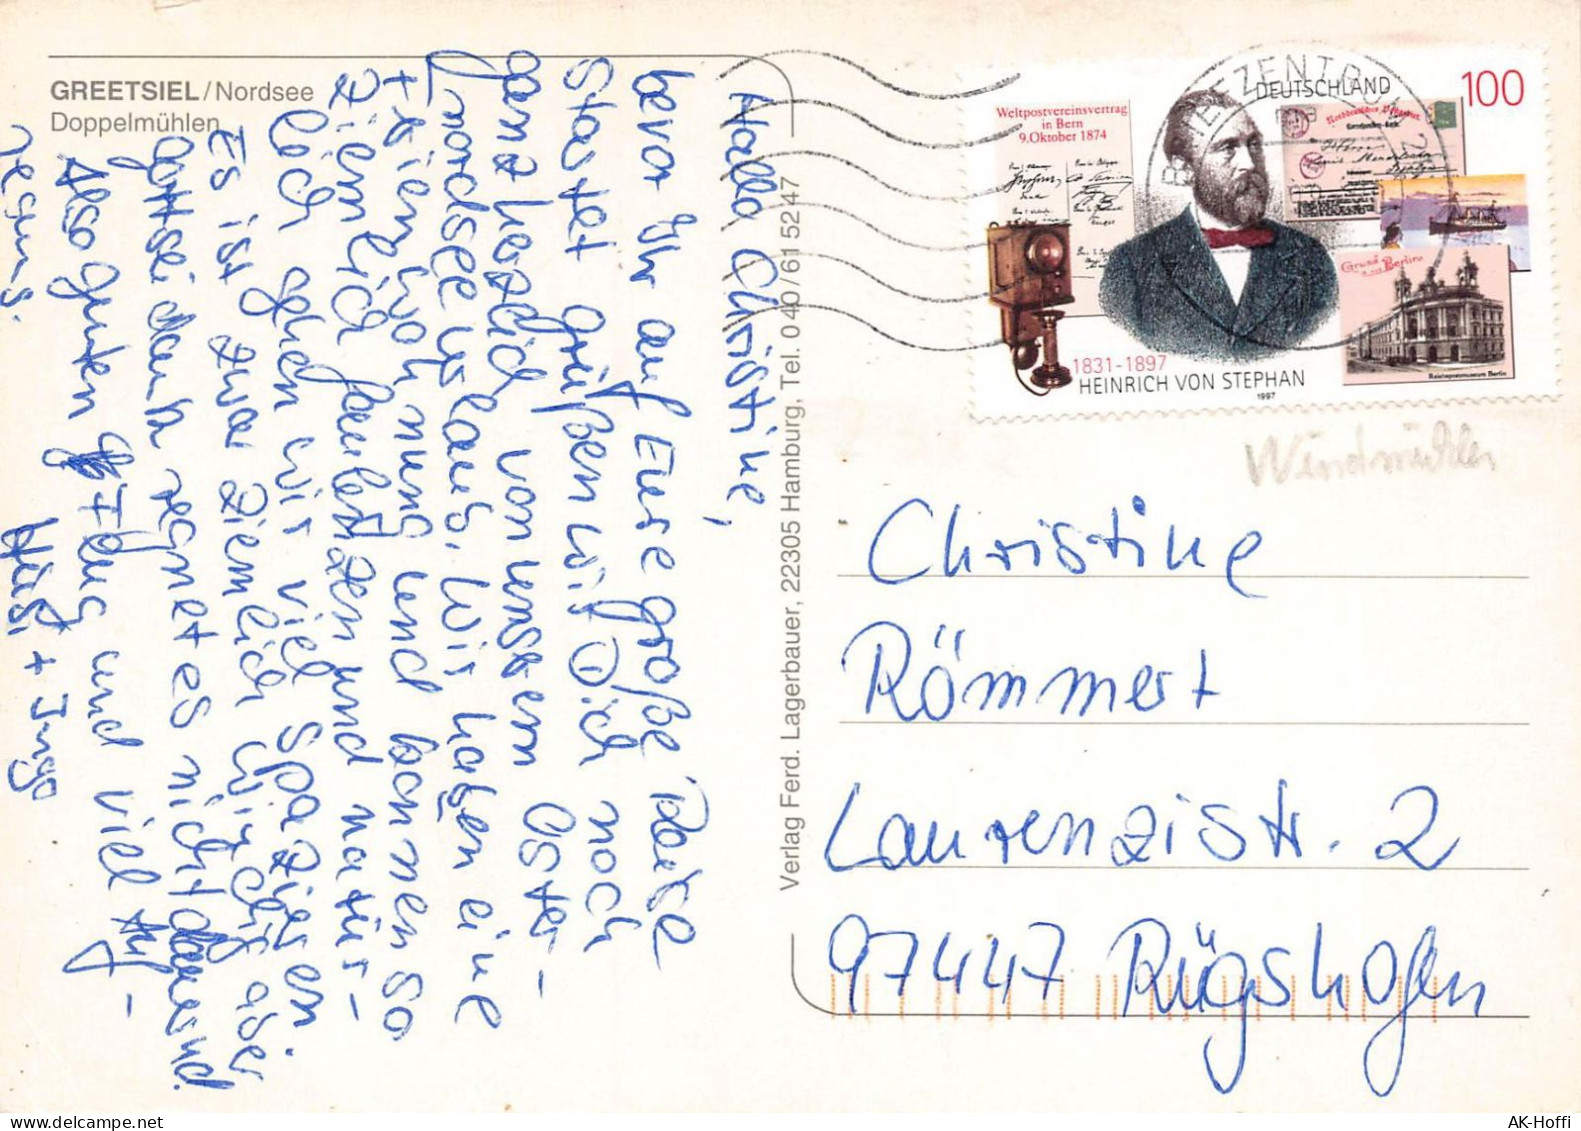 GREETSIEL/Nordsee
Doppelmühlen
Hallo Christine,
bevor Ihr auf Eure große Reise
startet grüßen wir Dich noch
ganz herzlich von unserem Oster-
/Nordseeurlaub. Wir haben eine
Ferienwohnung und können so
ziemlich faulenzen und natür-
lich gehen wir viel spazieren.
Es ist zwar ziemlich windig aber
Gottseidank regnet es nicht dauernd.
Also guten Flug und viel Auf-
regung.
+ Ingo
Verlag Ferd. Lagerbauer, 22305 Hamburg, Tel. 040/61 52 47
BRIEFZENTRUM
DEUTSCHLAND
100
Weltpostvereinsvertrag
in Bern
9.Oktober 1874
Norddeutsches Postgebiet
Gruss aus Berlin
Reichspostmuseum Berlin
1831-1897
HEINRICH VON STEPHAN
1997
Windmühlen
Christine
Römmert
Laurenzistr. 2
97447 Rügshofen
AK-Hoffi